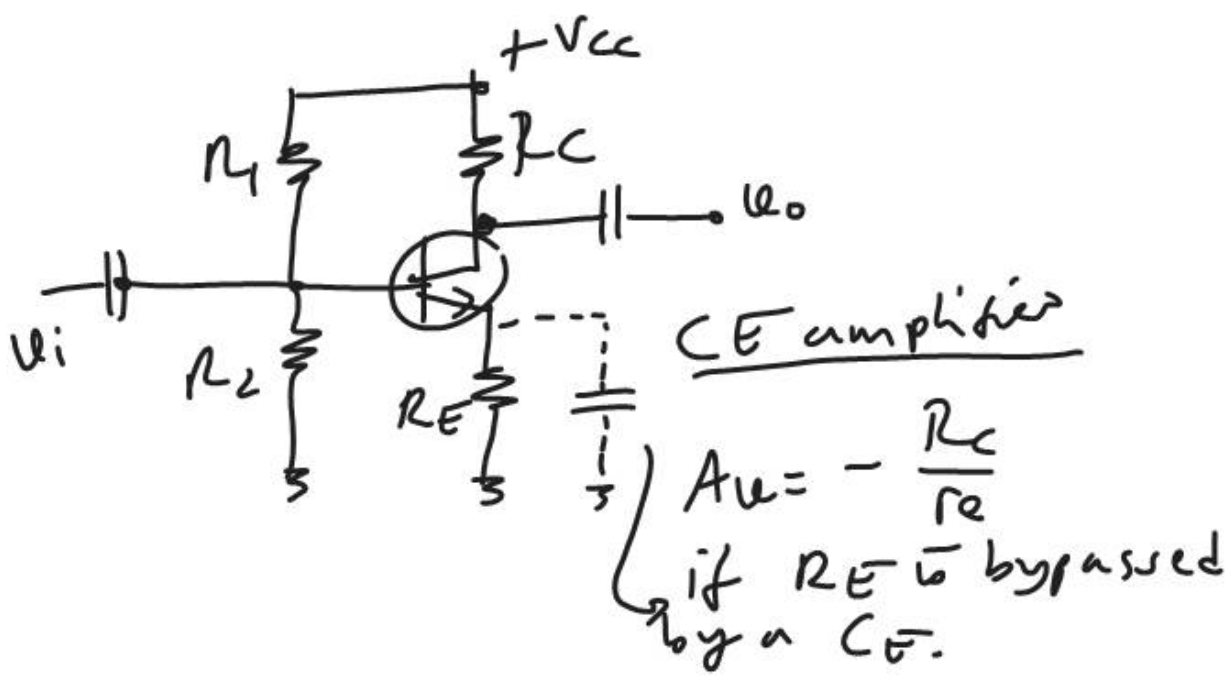 +Vcc
R1
RC
vo
vi
R2
RE
CE amplifier
Av = - Rc / re
if RE is bypassed
by a CE.